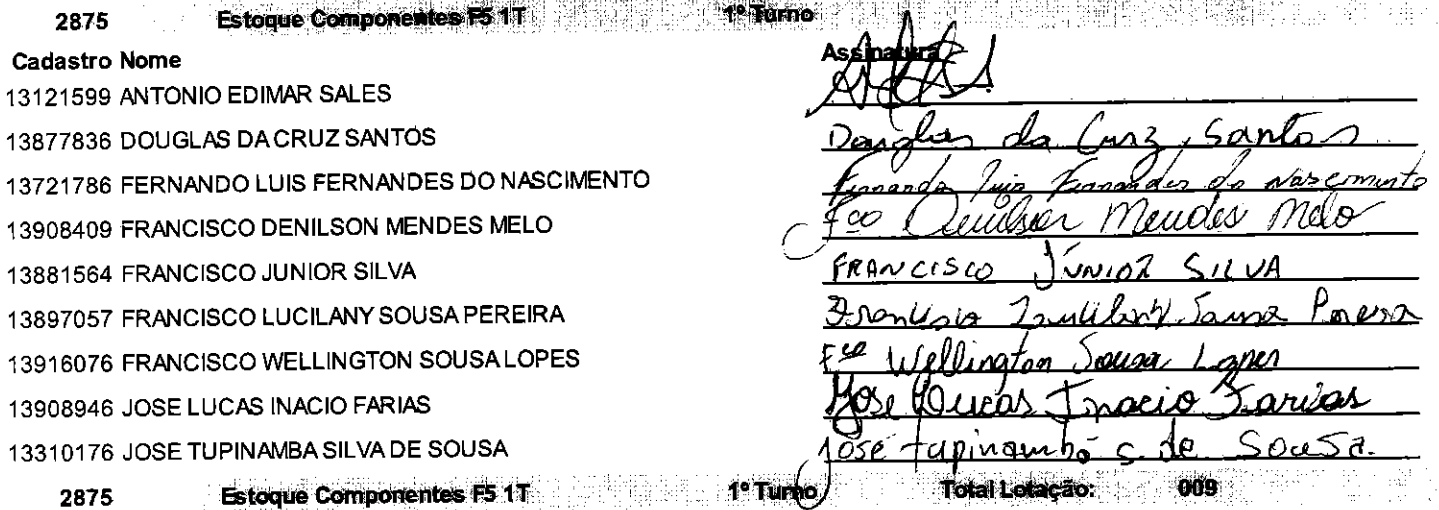 2875 Estoque Componentes F5 1T 1º Turno
Cadastro Nome Assinatura
13121599 ANTONIO EDIMAR SALES
13877836 DOUGLAS DA CRUZ SANTOS Douglas da Cruz Santos
13721786 FERNANDO LUIS FERNANDES DO NASCIMENTO Fernando Luis Fernandes do Nascimento
13908409 FRANCISCO DENILSON MENDES MELO Fco Denilson Mendes Melo
13881564 FRANCISCO JUNIOR SILVA FRANCISCO JÚNIOR SILVA
13897057 FRANCISCO LUCILANY SOUSA PEREIRA Francisco Lucilany Sousa Pereira
13916076 FRANCISCO WELLINGTON SOUSA LOPES Fco Wellington Sousa Lopes
13908946 JOSE LUCAS INACIO FARIAS Jose Lucas Inacio Farias
13310176 JOSE TUPINAMBA SILVA DE SOUSA José tupinambá S. de Sousa.
2875 Estoque Componentes F5 1T 1º Turno Total Lotação: 009